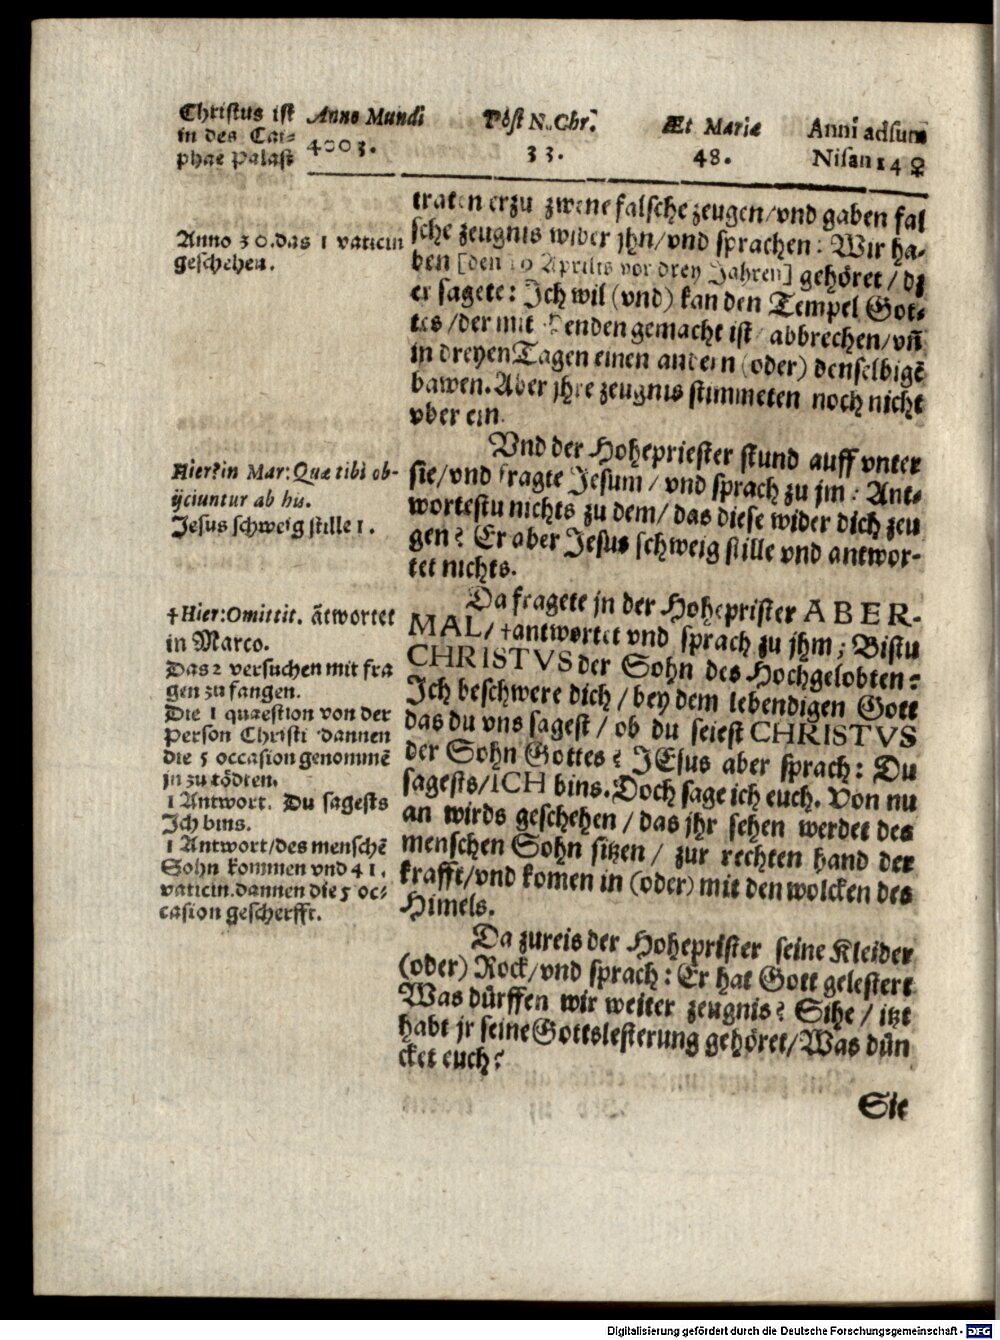 Christus ist
in des Cai-
phae Palast
Anno Mundi
4003.
Post N. Chr.
33.
Æt Mariæ
48.
Anni adsum
Nisan 14 ♀
Anno 30. das 1 vaticin
geschehen.
Hier: in Mar: Quæ tibi ob-
ijciuntur ab his.
Jesus schweig stille 1.
†Hier: Omittit. ãtwortet
in Marco.
Das 2 versuchen mit fra
gen zu fangen.
Die 1 quaestion von der
Person Christi dannen
die 5 occasion genommẽ
jn zu tödten.
1 Antwort. Du sagests
Ich bins.
1 Antwort/des menschẽ
Sohn kommen vnd 41.
vaticin. dannen die 5 oc-
casion gescherfft.
traten erzu zwene falsche zeugen/vnd gaben fal
sche zeugnis wider jhn/vnd sprachen: Wir ha-
ben [den 19 Aprilis vor drey Jahren] gehöret/dz
er sagete: Ich wil (vnd) kan den Tempel Got-
tes/der mit Henden gemacht ist/abbrechen/vñ
in dreyen Tagen einen andern (oder) denselbigẽ
bawen. Aber jhre zeugnis stimmeten noch nicht
vber ein.
Vnd der Hohepriester stund auff vnter
sie/vnd fragte Jesum/vnd sprach zu jm: Ant-
wortestu nichts zu dem/das diese wider dich zeu
gen? Er aber Jesus schweig stille vnd antwor-
tet nichts.
Da fragete jn der Hoheprister ABER-
MAL/†antwortet vnd sprach zu jhm; Bistu
CHRISTVS der Sohn des Hochgelobten?
Ich beschwere dich/bey dem lebendigen Gott
das du vns sagest/ob du seiest CHRISTVS
der Sohn Gottes? JEsus aber sprach: Du
sagests/ICH bins. Doch sage ich euch. Von nu
an wirds geschehen/das jhr sehen werdet des
menschen Sohn sitzen/zur rechten hand der
krafft/vnd komen in (oder) mit den wolcken des
Himels.
Da zureis der Hoheprister seine Kleider
(oder) Rock/vnd sprach: Er hat Gott gelestert
Was dürffen wir weiter zeugnis? Sihe/itzt
habt jr seine Gottslesterung gehöret/Was dün
cket euch?
Sie
Digitalisierung gefördert durch die Deutsche Forschungsgemeinschaft - DFG